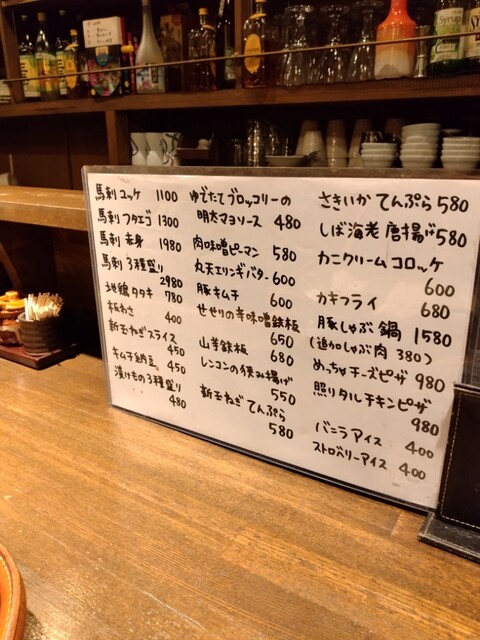 馬刺 ユッケ 1100
馬刺 フタエゴ 1300
馬刺 赤身 1980
馬刺 3種盛り
2980
地鶏タタキ 780
板わさ 400
新玉ねぎスライス
450
キムチ納豆 450
漬けもの3種盛り
480
ゆでたてブロッコリーの
明太マヨソース 480
肉味噌ピーマン 580
丸天エリンギバター 600
豚キムチ 600
せせりの辛味噌鉄板
650
山芋鉄板 680
レンコンの挟み揚げ
550
新玉ねぎ てんぷら
580
さきいか てんぷら 580
しば海老 唐揚げ 580
カニクリームコロッケ
600
カキフライ 680
豚しゃぶ鍋 1580
(追加しゃぶ肉 380)
めっちゃチーズピザ 980
照りタルチキンピザ
980
バニラアイス 400
ストロベリーアイス 400
Syrup